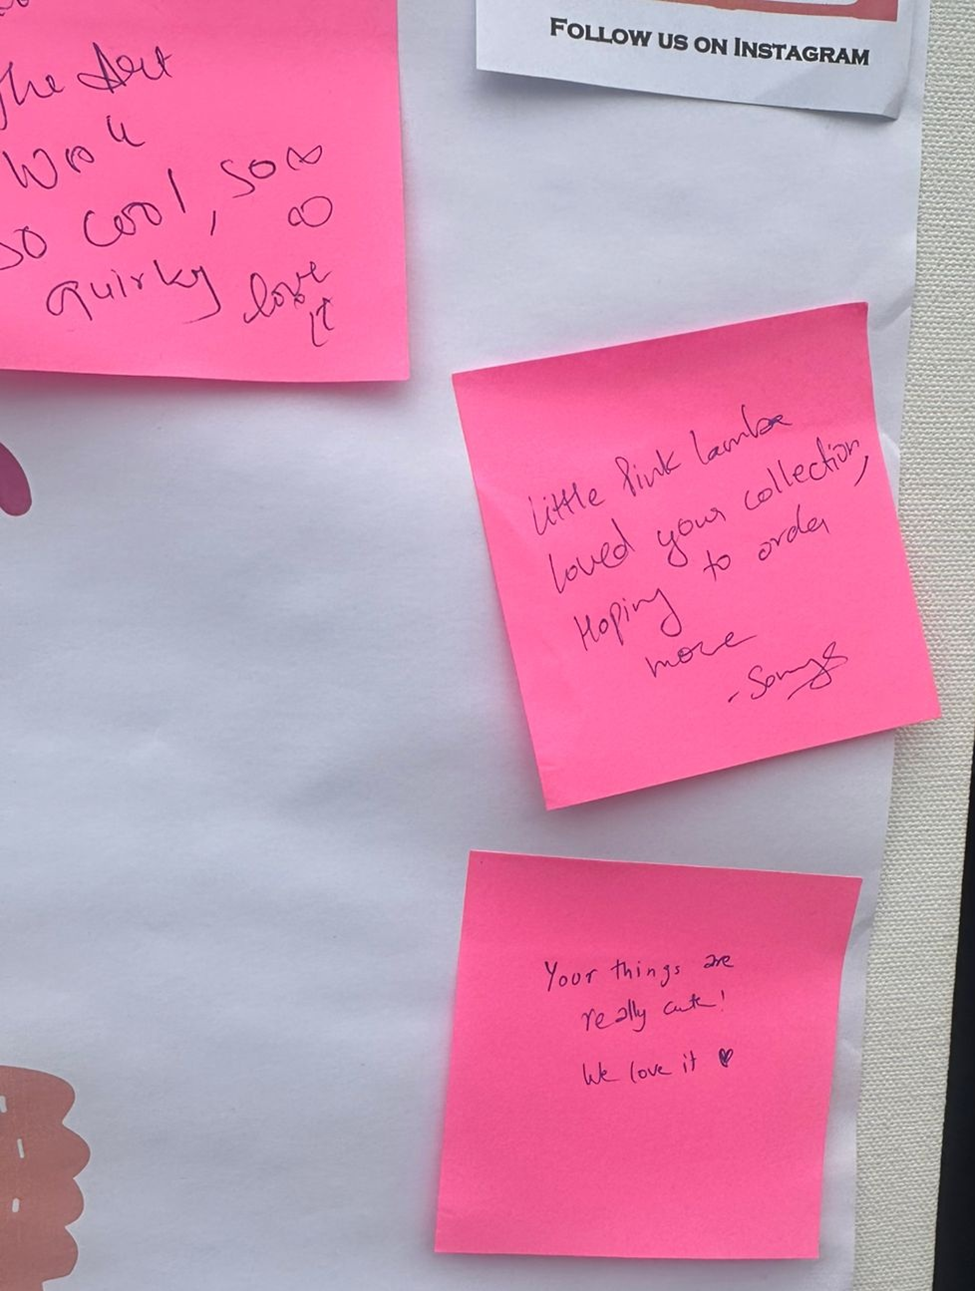 FOLLOW US ON INSTAGRAM
The Art
Work
so cool, soo
oo
quirky love
it
Little Pink Lambe
loved your collection,
Hoping to order
more
Your things are
really cute!
We love it ♥